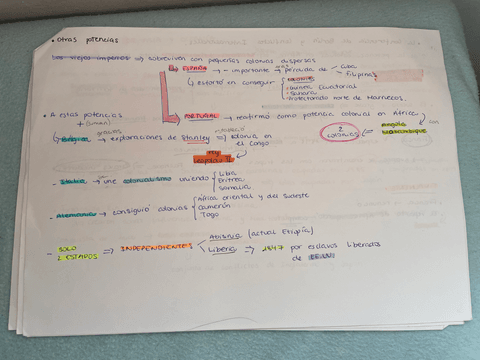 • Otras potencias
Los viejos imperios => sobreviven con pequeñas colonias dispersas
ESPAÑA → - importante → pérdida de - Cuba
- Filipinas
↳ esforzó en conseguir
Guinea Ecuatorial
Sahara
Protectorado norte de Marruecos.
• A estas potencias
PORTUGAL → reafirmó como potencia colonial en África
+ (suman)
2 colonias
Angola
Mozambique
gracias
↳ Bélgica → exploraciones de Stanley => colonia en
el Congo
- Italia → une colonialismo uniendo
Libia
Eritrea
Somalia
- Alemania → consiguió colonias
África oriental y del sudeste
Camerún
Togo
- SOLO
2 ESTADOS => INDEPENDIENTES
Abisinia (actual Etiopía)
Liberia => 1847 por esclavos liberados
de